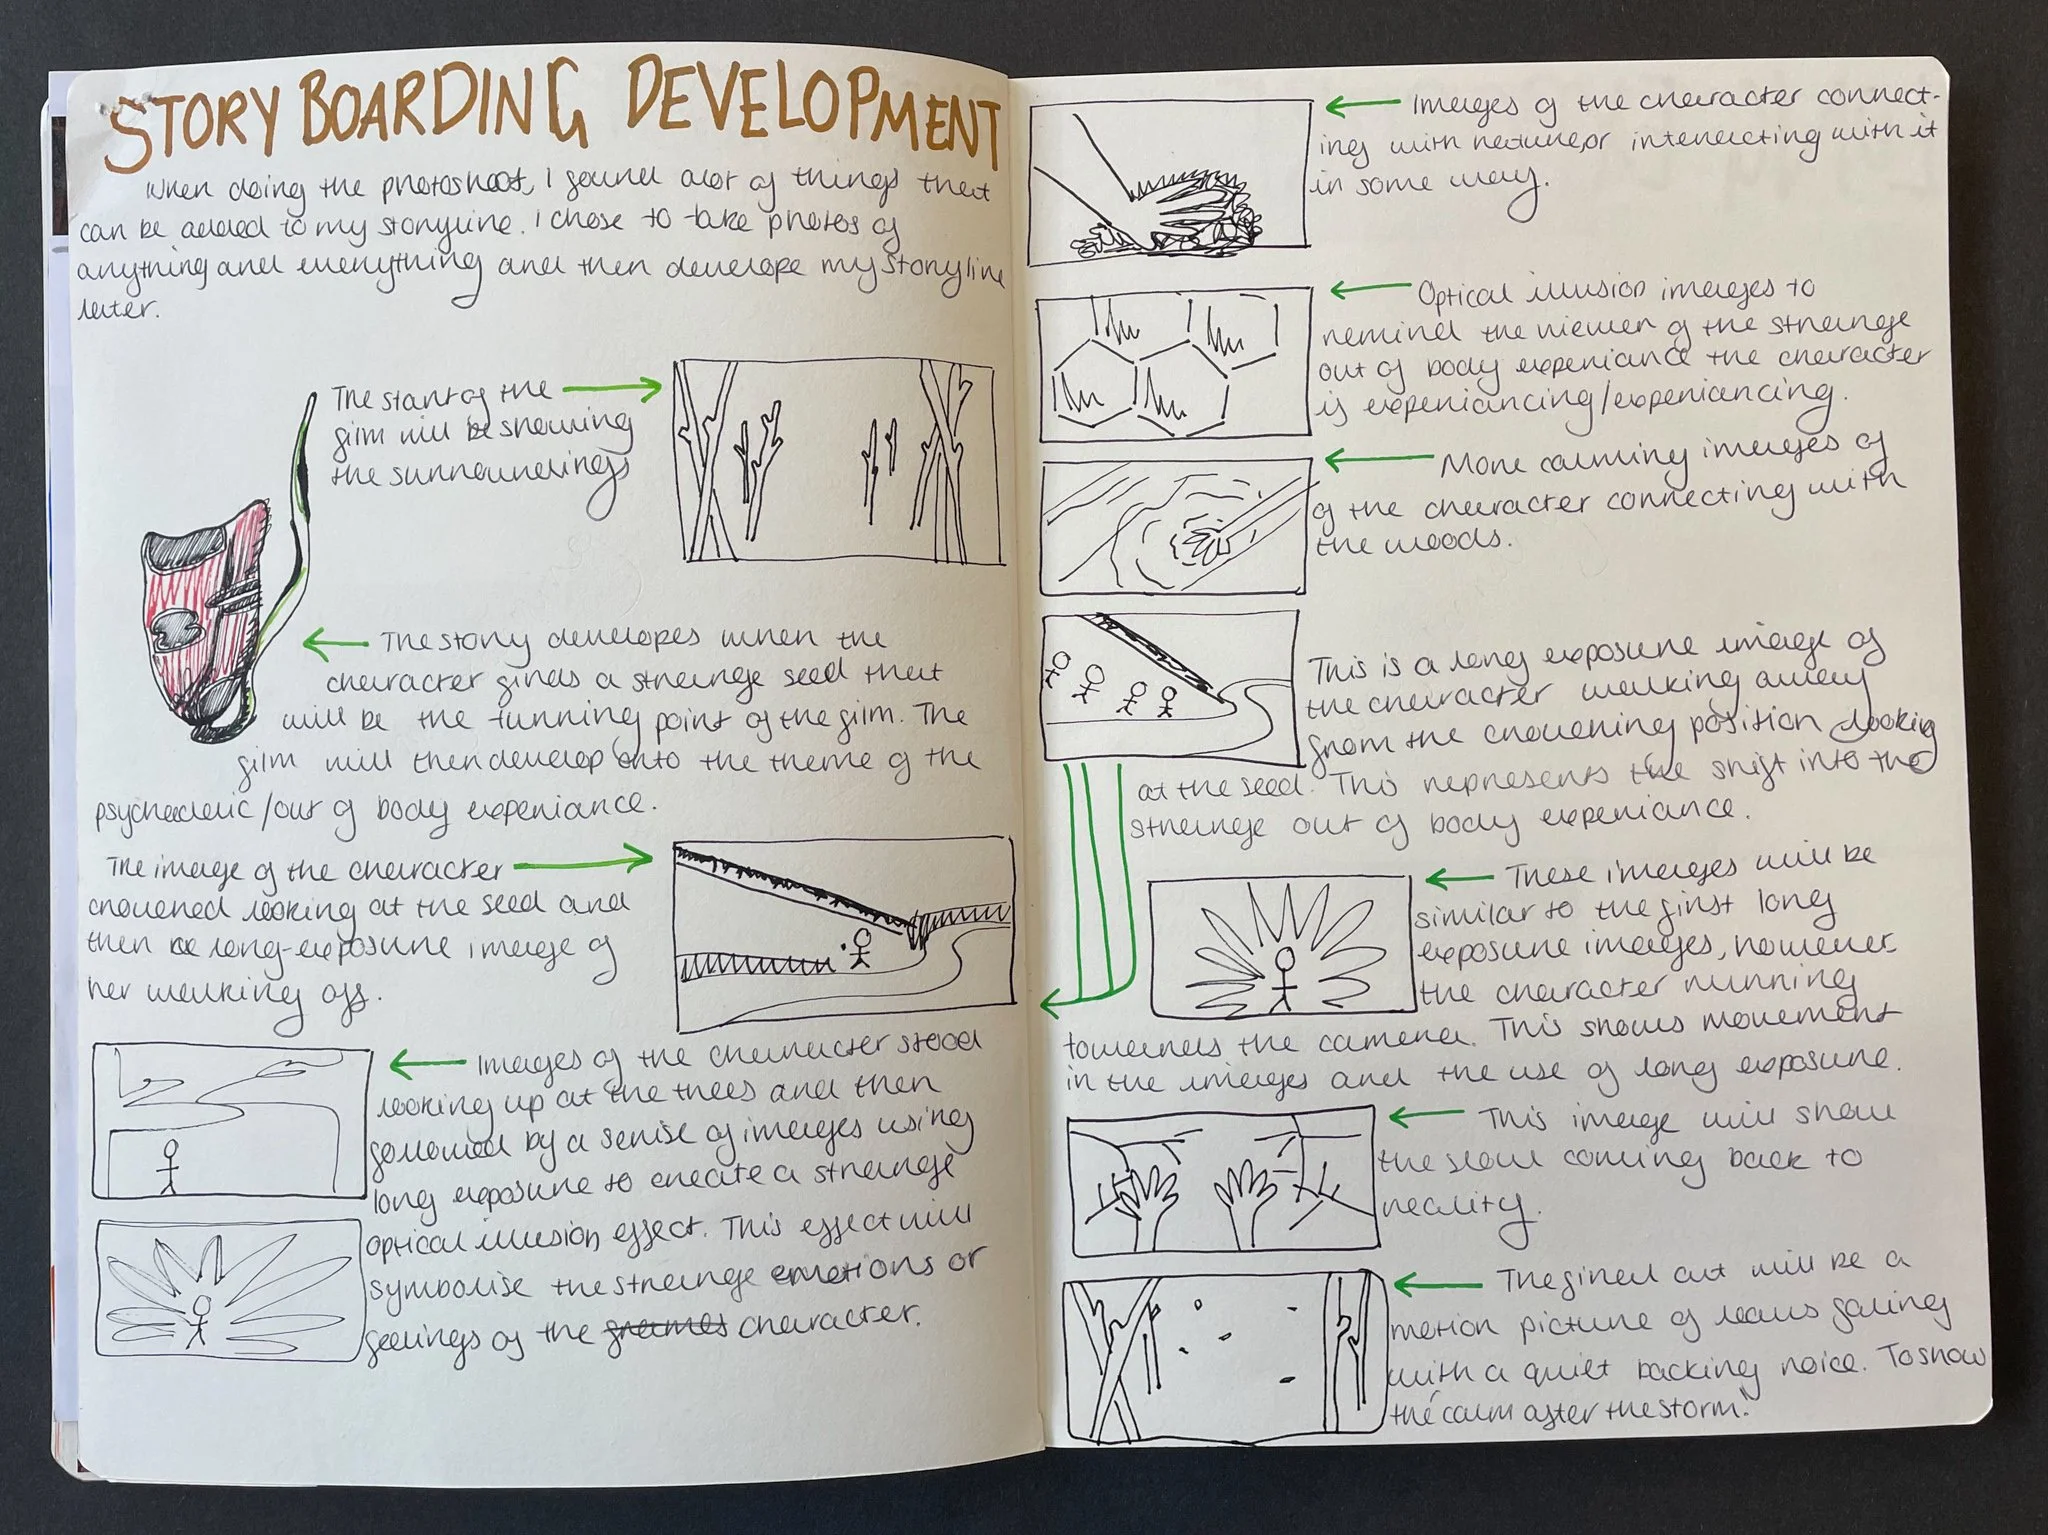 STORY BOARDING DEVELOPMENT
When doing the photoshoot, I found alot of things that
can be added to my storyline. I chose to take photos of
anything and everything and then develope my storyline
later.
The start of the
film will be showing
the surroundings
The story developes when the
character finds a strange seed that
will be the turning point of the film. The
film will then develop onto the theme of the
psychedelic/out of body experiance.
The image of the character
crouched looking at the seed and
then a long-exposure image of
her walking off.
Images of the character stood
looking up at the trees and then
followed by a serise of images using
long exposure to create a strange
optical illusion effect. This effect will
symbolise the strange emotions or
feelings of the frames character.
Images of the character connect-
ing with nature, or interacting with it
in some way.
Optical illusion images to
remind the viewer of the strange
out of body experiance the character
is experiancing/experiancing.
More calming images of
of the character connecting with
the woods.
This is a long exposure image of
the character walking away
from the crouching position looking
at the seed. This represents the shift into the
strange out of body experiance.
These images will be
similar to the first long
exposure images, however
the character running
towards the camera. This shows movement
in the images and the use of long exposure.
This image will show
the slow coming back to
reality.
The final cut will be a
motion picture of leavs falling
with a quiet backing noice. To show
the 'calm after the storm'.